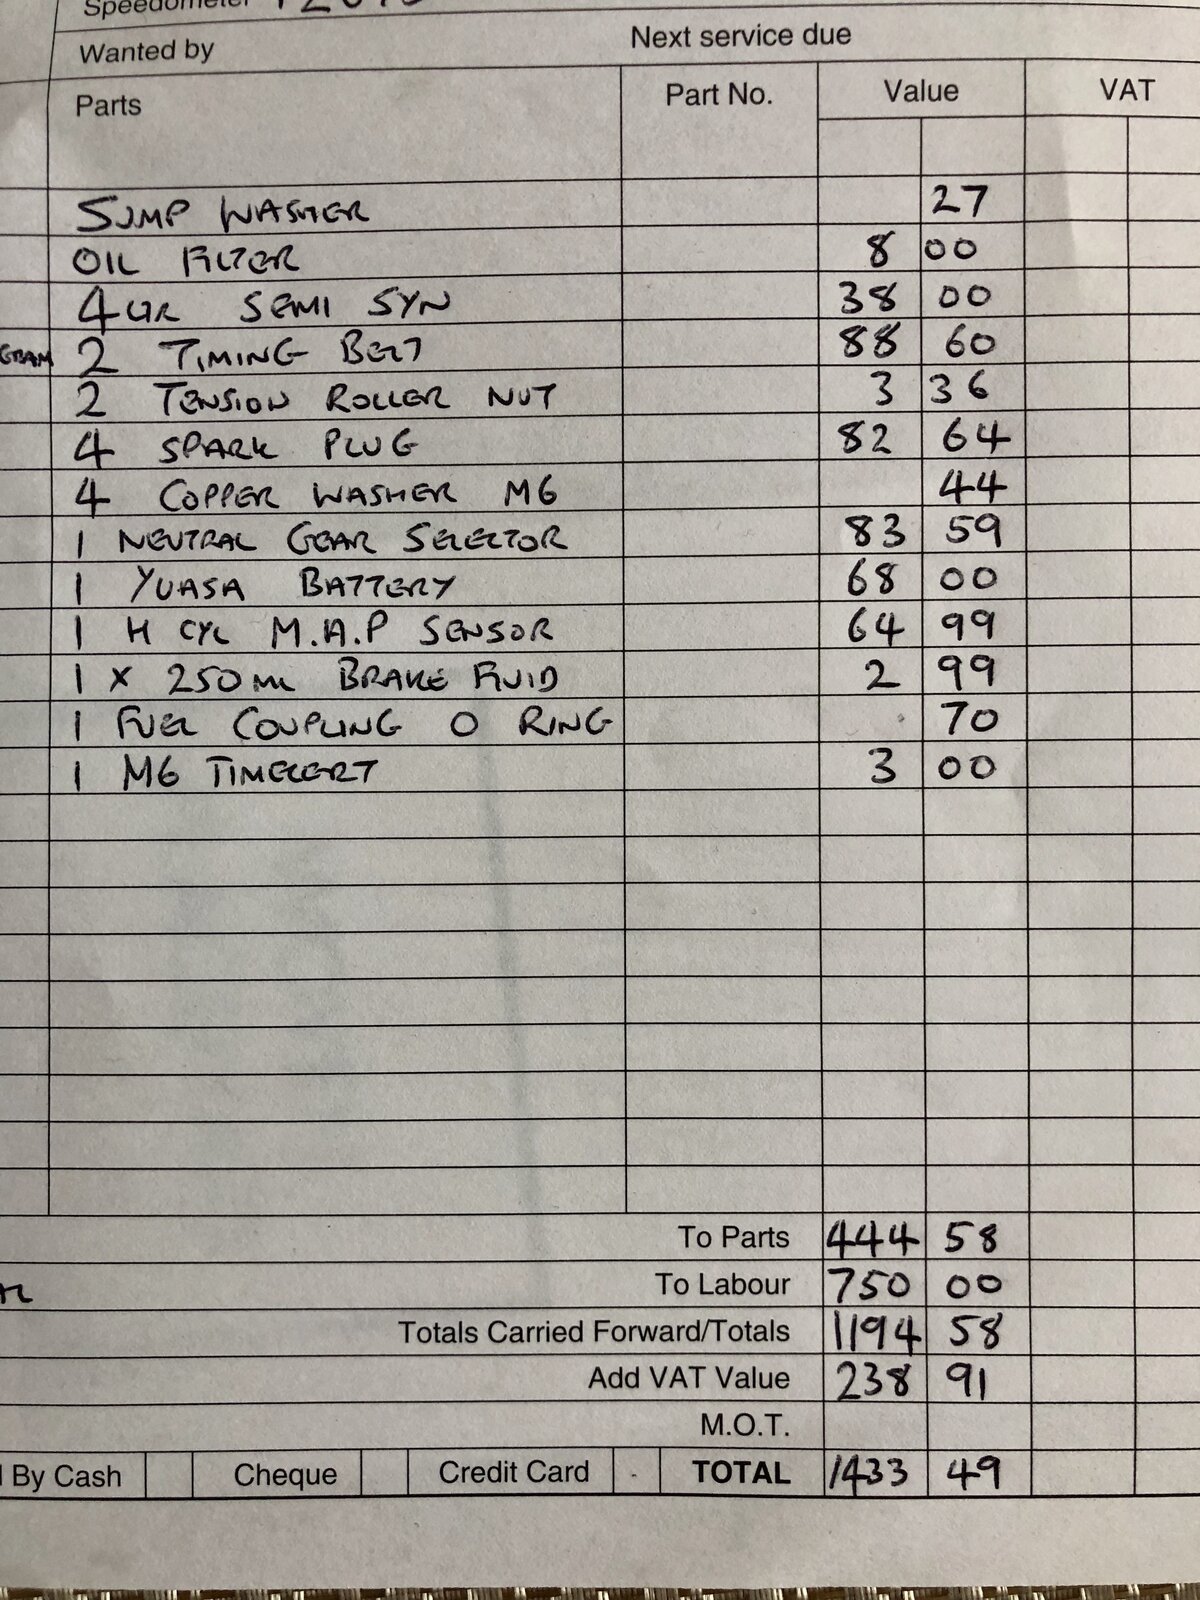 Speedometer
Wanted by Next service due
Parts Part No. Value VAT
SUMP WASHER 27
OIL FILTER 8 00
4 LTR SEMI SYN 38 00
2 TIMING BELT 88 60
2 TENSION ROLLER NUT 3 36
4 SPARK PLUG 82 64
4 COPPER WASHER M6 44
1 NEUTRAL GEAR SELECTOR 83 59
1 YUASA BATTERY 68 00
1 H CYL M.A.P SENSOR 64 99
1 x 250ML BRAKE FLUID 2 99
1 FUEL COUPLING O RING 70
1 M6 TIMECERT 3 00
To Parts 444 58
To Labour 750 00
Totals Carried Forward/Totals 1194 58
Add VAT Value 238 91
M.O.T.
By Cash Cheque Credit Card TOTAL 1433 49